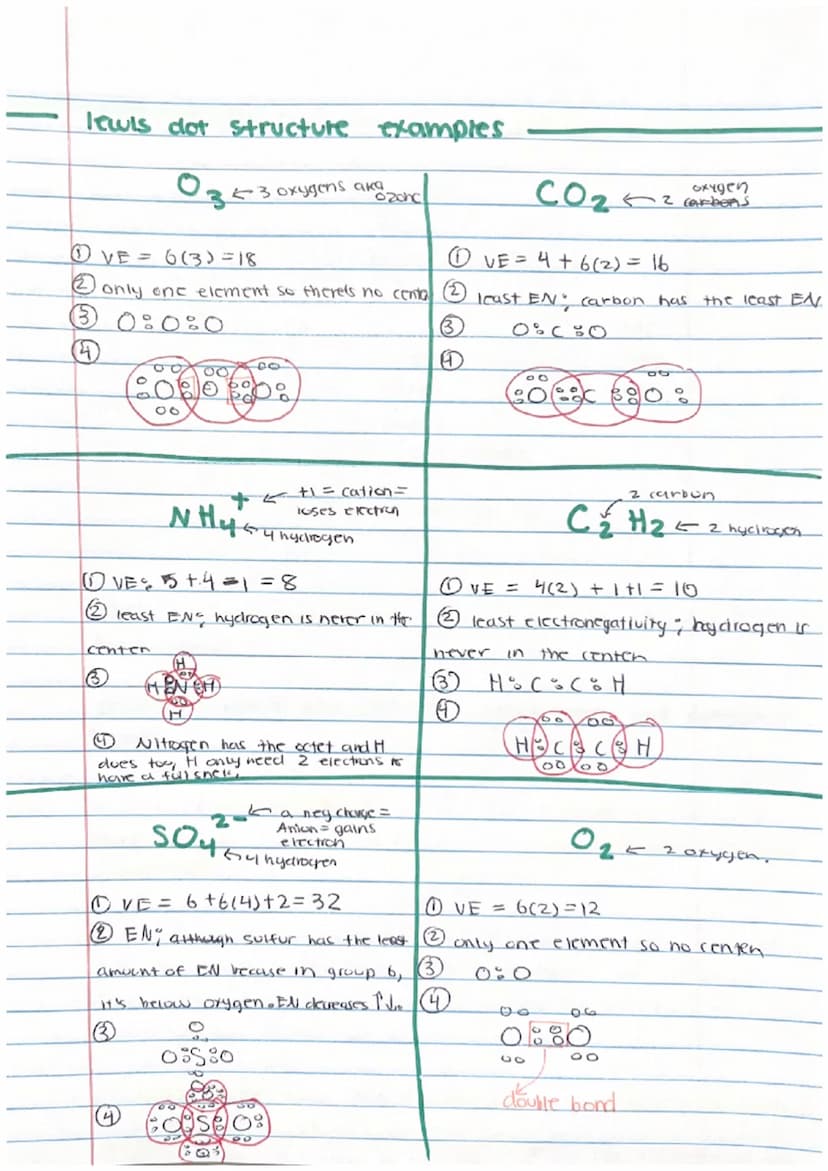 lewis dot structure examples
O3 ← 3 oxygens aka ozone
① VE = 6(3) = 18
② only one element so there's no cente
③ O:O:O
④
O O O
CO2 ← 2 oxygen carbons
① VE = 4 + 6(2) = 16
② least EN; carbon has the least EN
③ O:C:O
④
O C O
NH4+ ← +1 = cation =
loses electron
← 4 hydrogen
① VE: 5 + 4 - 1 = 8
② least EN; hydrogen is never in the
center
③ H
H N H
H
④ Nitrogen has the octet and H
does too, H only need 2 electrons to
have a full shell.
2 carbon
C2H2 ← 2 hydrogen
① VE = 4(2) + 1+1 = 10
② least electronegativity; hydrogen is
never in the center
③ H:C:C:H
④
H C C H
SO4 2- ← a neg charge =
Anion = gains
electron
← 4 hydrogen
① VE = 6+6(4)+2=32
② EN; although sulfur has the least
amount of EN becuse in group 6,
it's below oxygen. EN decreases ↑↓.
③ O
O:S:O
O
④ O
O S O
O
O2 ← 2 oxygen.
① VE = 6(2)=12
② only one element so no center
③ O:O
④
O::O
double bond